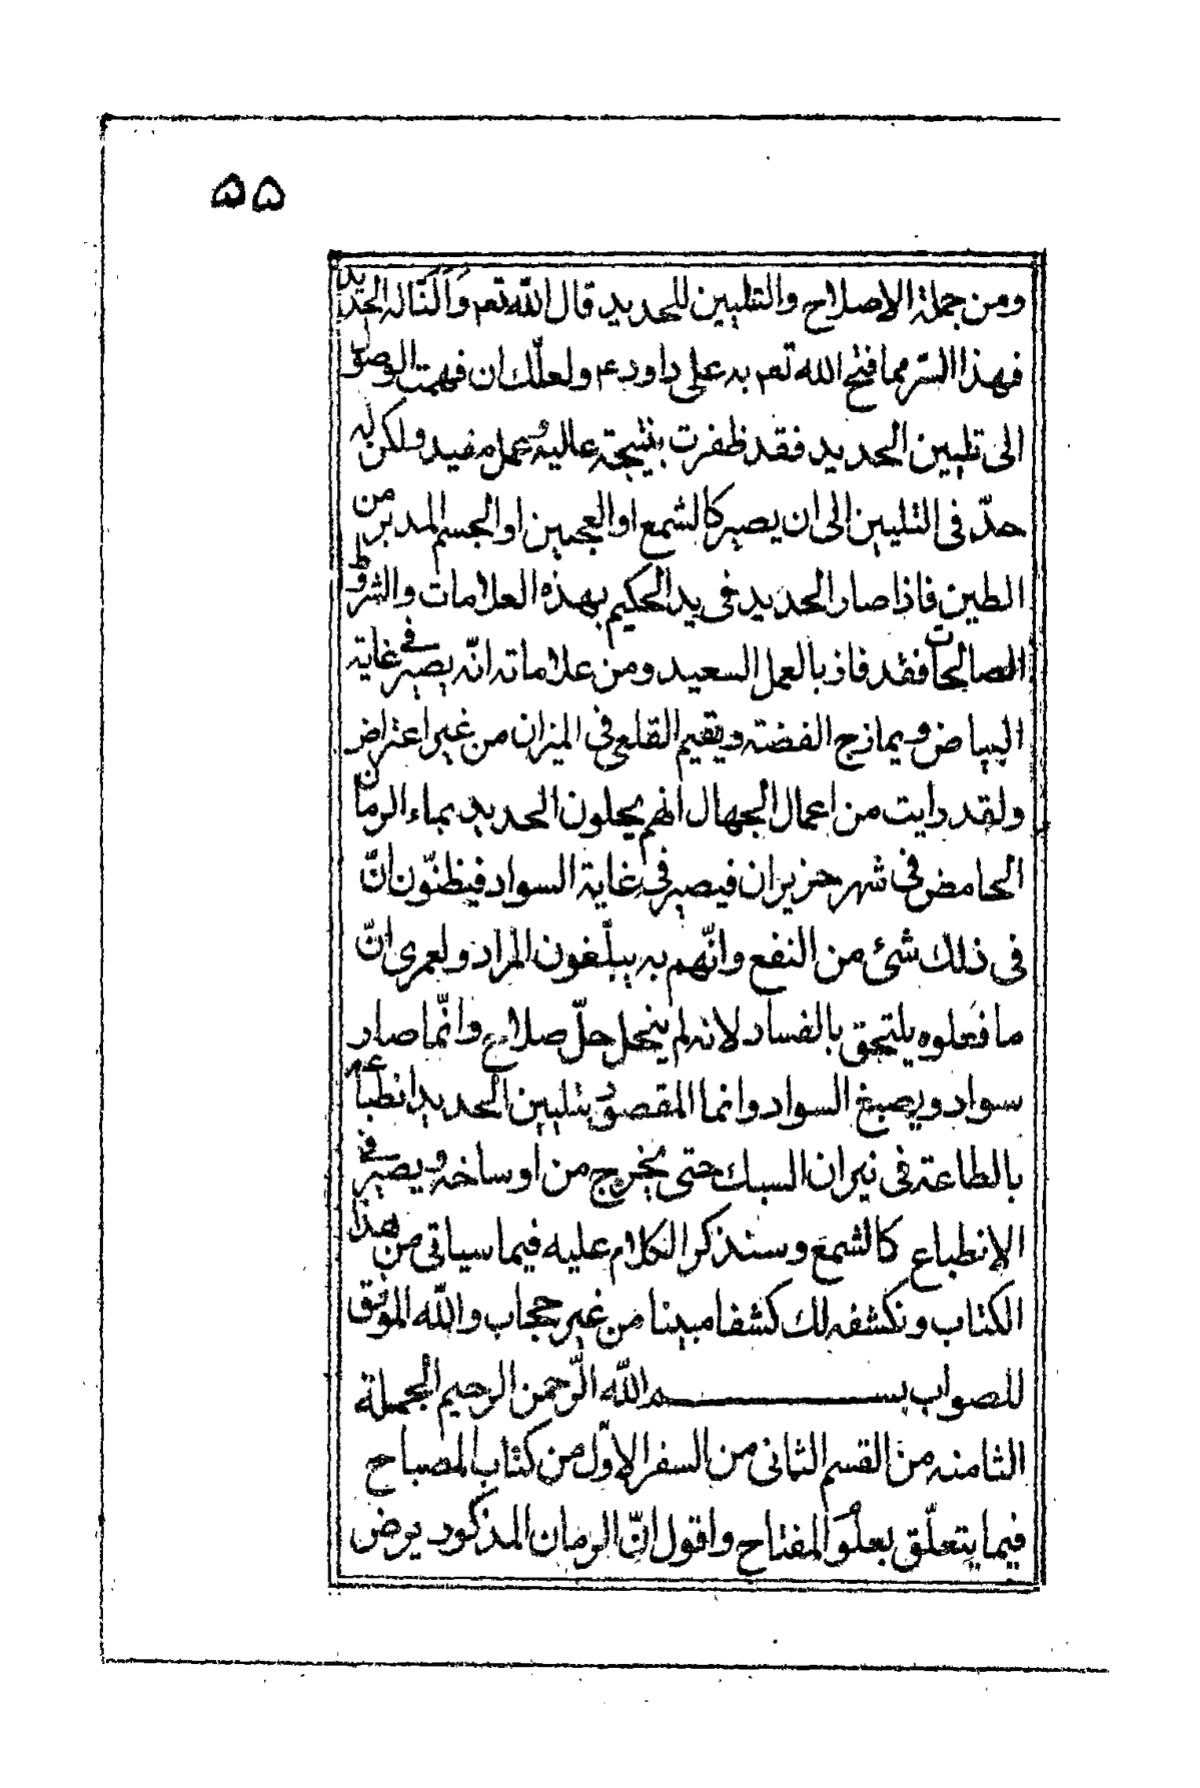 ۵۵
ومن جملة الاصلاح والتليين للحديد قال الله تعم وَاَلَنّا له الحَديد
فهذا السّر مما فتح الله تعم به على داود ع ولعلّك ان فهمت الوصول
الى تليين الحديد فقد ظفرت بنتيجة عاليه وعمل مفيد ولكن له
حدّ فى التليين الى ان يصير كالشمع او العجين او الجسم المدبر من
الطين فاذا صار الحديد فى يد الحكيم بهذه العلامات والشروط
الصالحات فقد فاذ بالعمل السعيد ومن علاماته انّه يصير فى غاية
البياض ويمازج الفضته ويقيم القلعى فى الميزان من غير اعتراض
ولقد رايت من اعمال الجهال انهم يحلون الحديد بماء الرمان
الحامض فى شهر حزيران فيصير فى غاية السواد فيظنّون انّ
فى ذلك شئ من النفع وانّهم به يبلّغون المراد ولعمرى انّ
ما فعلوه يلتحق بالفساد لانه لم ينحل حلّ صلاح وانّما صار
سواد ويصبغ السواد وانما المقصود بتليين الحديد انطباعه
بالطاعة فى نيران السبك حتى يخرج من اوساخه ويصير فى
الانطباع كالشمع وسنذكر الكلام عليه فيما سياتى من هذا
الكتاب ونكشفه لك كشفا مبينا من غير حجاب والله الموفق
للصواب بســـم الله الرّحمن الرحيم الجملة
الثامنه من القسم الثانى من السفر الاوّل من كتاب المصباح
فيما يتعلّق بعلو المفتاح واقول انّ الرمان المذكور يرض